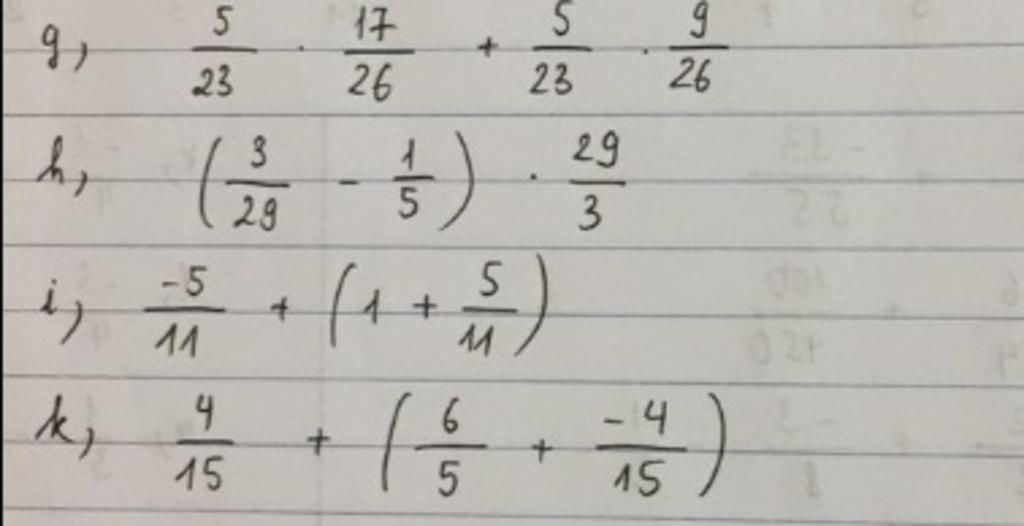 g, 5/23 · 17/26 + 5/23 · 9/26
h, (3/29 - 1/5) · 29/3
i, -5/11 + (1 + 5/11)
k, 4/15 + (6/5 + -4/15)